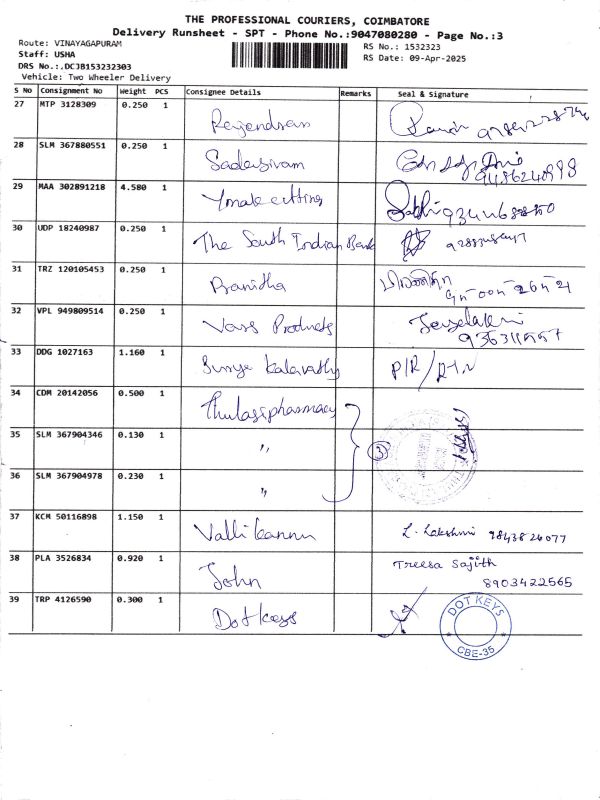 THE PROFESSIONAL COURIERS, COIMBATORE
Delivery Runsheet - SPT - Phone No.:9047080280 - Page No.:3
Route: VINAYAGAPURAM
RS No.: 1532323
Staff: USHA
RS Date: 09-Apr-2025
DRS No.:.DCJB153232303
Vehicle: Two Wheeler Delivery
S No Consignment No Weight PCS Consignee Details Remarks Seal & Signature
27 MTP 3128309 0.250 1 Rajendran
28 SLM 367880551 0.250 1 Sadasivam
29 MAA 302891218 4.580 1
30 UDP 18240987 0.250 1 The South Indian Bank
31 TRZ 120105453 0.250 1 Banitha
32 VPL 949809514 0.250 1 Vars Products
33 DDG 1027163 1.160 1
34 CDM 20142056 0.500 1 Thulasipharmacy
35 SLM 367904346 0.130 1 "
3
36 SLM 367904978 0.230 1 "
37 KCM 50116898 1.150 1 Vallikannu L. Lakshmi 9843826077
38 PLA 3526834 0.920 1 John Treesa Sajith
8903422565
39 TRP 4126590 0.300 1 Dotkeys DOT KEYS
CBE-35